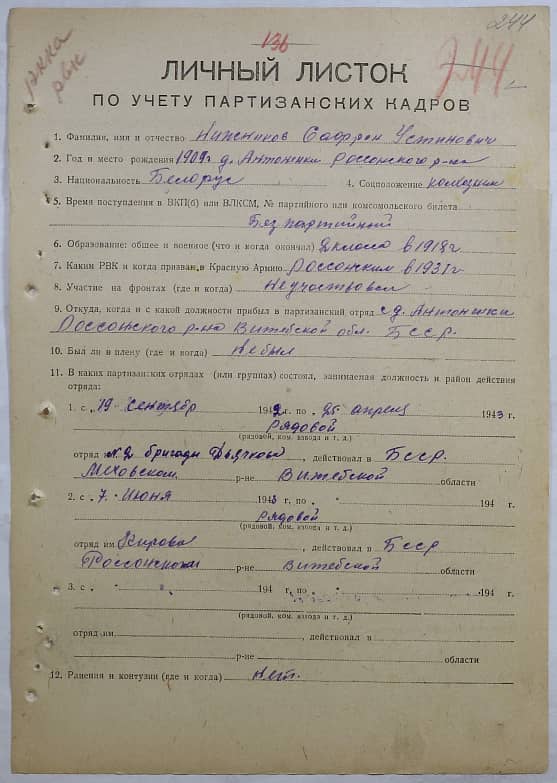 244
136
ркка
рвк
244
ЛИЧНЫЙ ЛИСТОК
ПО УЧЕТУ ПАРТИЗАНСКИХ КАДРОВ
1. Фамилия, имя и отчество Нижников Сафрон Устинович
2. Год и место рождения 1909г д. Антоненки Россонского р-на
3. Национальность Белорус 4. Соцположение колхозник
5. Время поступления в ВКП(б) или ВЛКСМ, № партийного или комсомольского билета
Без партийный
6. Образование: общее и военное (что и когда окончил) 2 класса в 1918г
7. Каким РВК и когда призван в Красную Армию Россонским в 1931г
8. Участие на фронтах (где и когда) Неучаствовал
9. Откуда, когда и с какой должности прибыл в партизанский отряд с д. Антоненки
Россонского р-на Витебской обл. Бсср.
10. Был ли в плену (где и когда) Небыл
11. В каких партизанских отрядах (или группах) состоял, занимаемая должность и район действия
отряда:
1. с „19 сентябр 1942 г. по „25 апреля 1943 г.
Рядовой
(рядовой, ком. взвода и т. д.)
отряд № 2 бригады Дьячкова, действовал в Бсср.
Меховском р-не Витебской области
2. с „7. Июня 1943 г. по „ 194 г.
Рядовой
(рядовой, ком. взвода и т. д.)
отряд им Кирова, действовал в Бсср
Россонском р-не Витебской области
3. с „ 194 г. по „ 194 г.
(рядовой, ком. взвода и т. д.)
отряд им. , действовал в
р-не области
12. Ранения и контузии (где и когда) Нет.